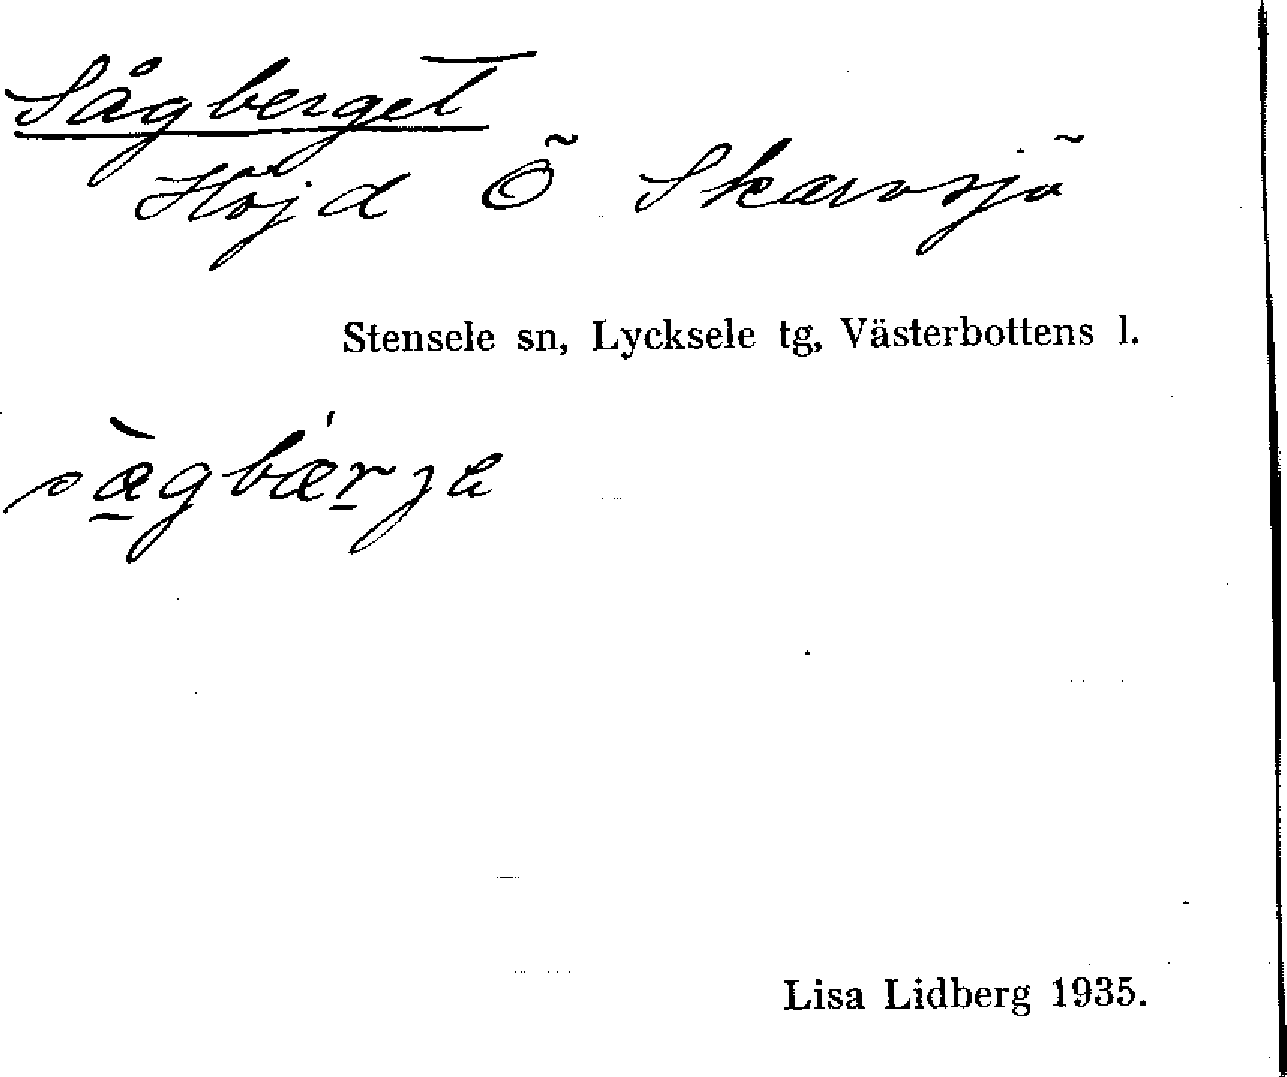 Sågberget
Höjd Ö Skarvsjö
Stensele sn, Lycksele tg, Västerbottens l.
sæ̠̀gbǽr̠je
Lisa Lidberg 1935.